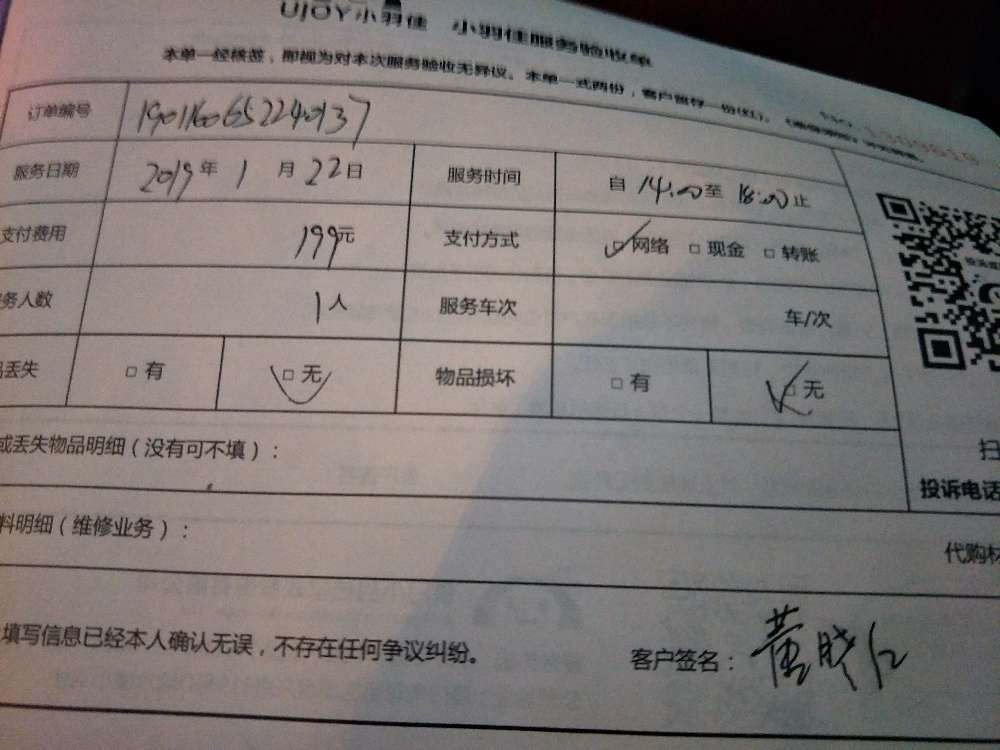 UJOY小羽佳 小羽佳服务验收单
本单一经核签，即视为对本次服务验收无异议。本单一式两份，客户留存一份(红)。
订单编号 19011606522240137
服务日期 2019年1月22日 服务时间 自14:00至18:00止
支付费用 199元 支付方式 ☑网络 □现金 □转账
务人数 1人 服务车次 车/次
丢失 □有 ☑无 物品损坏 □有 ☑无
或丢失物品明细（没有可不填）：
扫
投诉电话
料明细（维修业务）： 代购材
填写信息已经本人确认无误，不存在任何争议纠纷。 客户签名：黄晓红